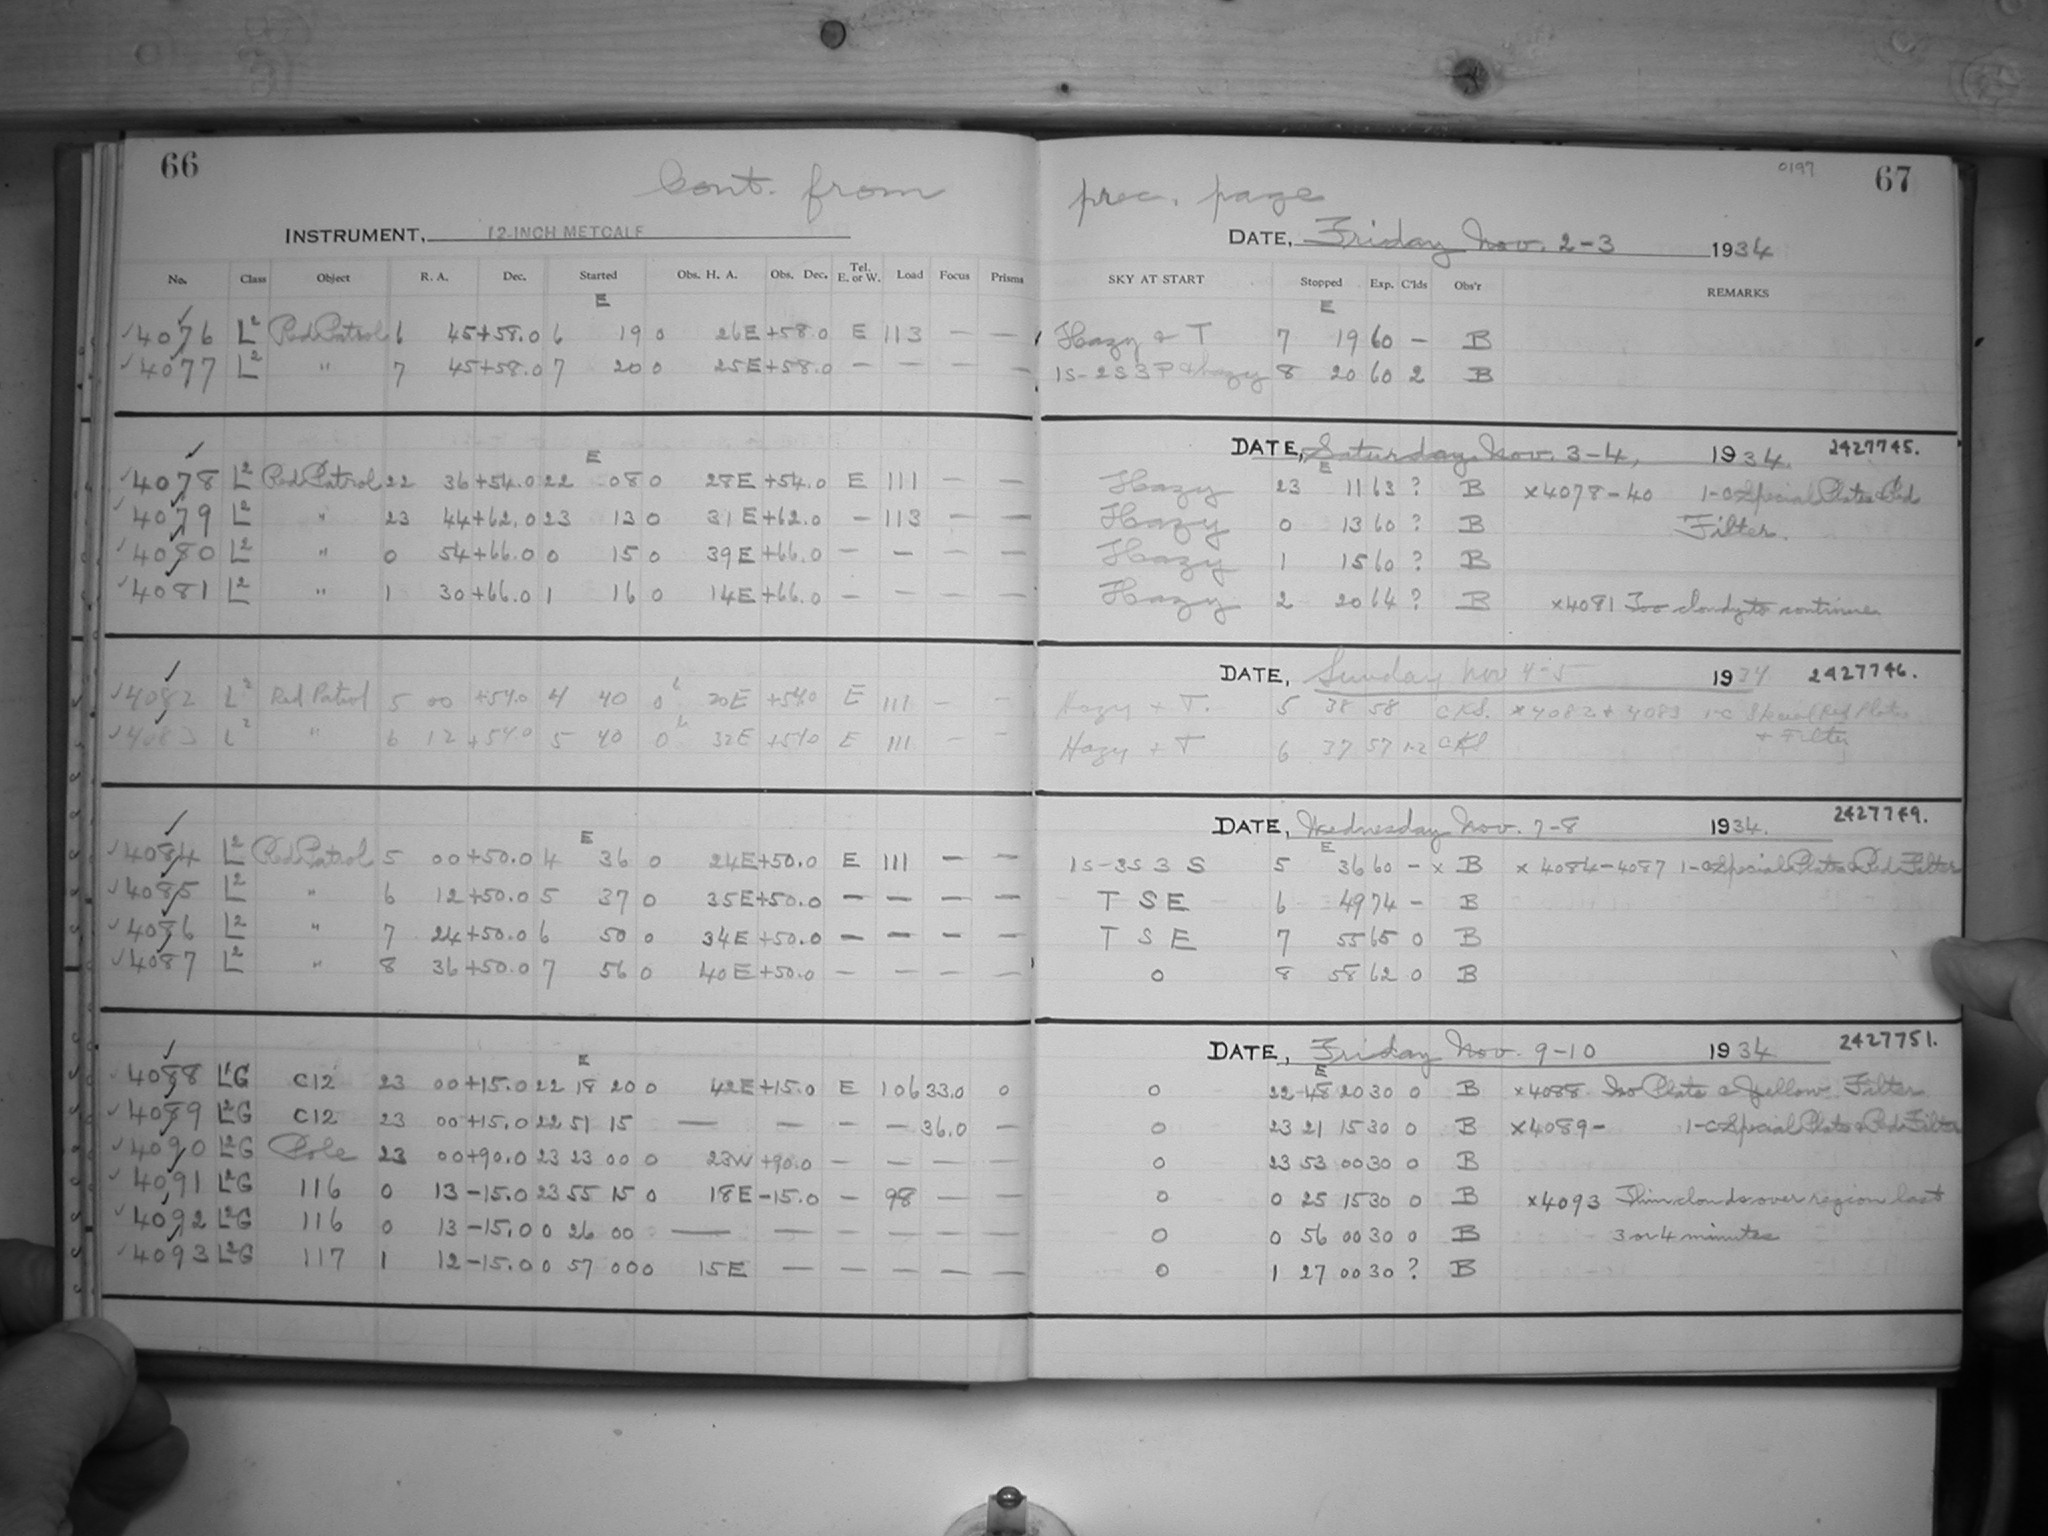 66
Cont. from prec. page
0197 67
INSTRUMENT, 12-INCH METCALF DATE, Friday Nov. 2-3 1934
No. Class Object R. A. Dec. Started Obs. H. A. Obs. Dec. Tel. E. or W. Load Focus Prisms SKY AT START Stopped Exp. C'lds Obs'r REMARKS
E E
4076 L2 Red Patrol 6 45 +58.0 6 19 0 26E +58.0 E 113 — — Hazy & T 7 19 60 — B
4077 L2 " 7 45 +58.0 7 20 0 25E +58.0 — — — — 1S-2S3P & hazy 8 20 60 2 B
DATE, Saturday Nov. 3-4, 1934. 2427745.
E E
4078 L2 Red Patrol 22 36 +54.0 22 08 0 28E +54.0 E 111 — — Hazy 23 11 63 ? B x4078-40 1-C Special Plates & Red
4079 L2 " 23 44 +62.0 23 13 0 31E +62.0 — 113 — — Hazy 0 13 60 ? B Filter.
4080 L2 " 0 54 +66.0 0 15 0 39E +66.0 — — — — Hazy 1 15 60 ? B
4081 L2 " 1 30 +66.0 1 16 0 14E +66.0 — — — — Hazy 2 20 64 ? B x4081 Too cloudy to continue
DATE, Sunday Nov 4-5 1934 2427746.
4082 L2 Red Patrol 5 00 +54.0 4 40 0 20E +54.0 E 111 — — Hazy + T. 5 38 58 CKS. x4082 + 4083 1-C Special Red Plates
4083 L2 " 6 12 +54.0 5 40 0 32E +54.0 E 111 — — Hazy + T 6 37 57 1-2 CKS + Filter
DATE, Wednesday Nov. 7-8 1934. 2427749.
E E
4084 L2 Red Patrol 5 00 +50.0 4 36 0 24E +50.0 E 111 — — 1S-2S3S 5 36 60 — x B x 4084-4087 1-C Special Plates & Red Filter
4085 L2 " 6 12 +50.0 5 37 0 35E +50.0 — — — — T S E 6 49 74 — B
4086 L2 " 7 24 +50.0 6 50 0 34E +50.0 — — — — T S E 7 55 65 0 B
4087 L2 " 8 36 +50.0 7 56 0 40E +50.0 — — — — 0 8 58 62 0 B
DATE, Friday Nov. 9-10 1934 2427751.
E E
4088 L1G C12 23 00 +15.0 22 18 20 0 42E +15.0 E 106 33.0 0 0 22 48 20 30 0 B x4088 Iso Plate & Yellow Filter
4089 L2G C12 23 00 +15.0 22 51 15 — — — — 36.0 — 0 23 21 15 30 0 B x4089- 1-C Special Plate & Red Filter
4090 L2G Pole 23 00 +90.0 23 23 00 0 23W +90.0 — — — — 0 23 53 00 30 0 B
4091 L2G 116 0 13 -15.0 23 55 15 0 18E -15.0 — 98 — — 0 0 25 15 30 0 B x4093 Thin clouds over region last
4092 L2G 116 0 13 -15.0 0 26 00 — — — — — — 0 0 56 00 30 0 B 3 or 4 minutes
4093 L2G 117 1 12 -15.0 0 57 00 0 15E — — — — — 0 1 27 00 30 ? B